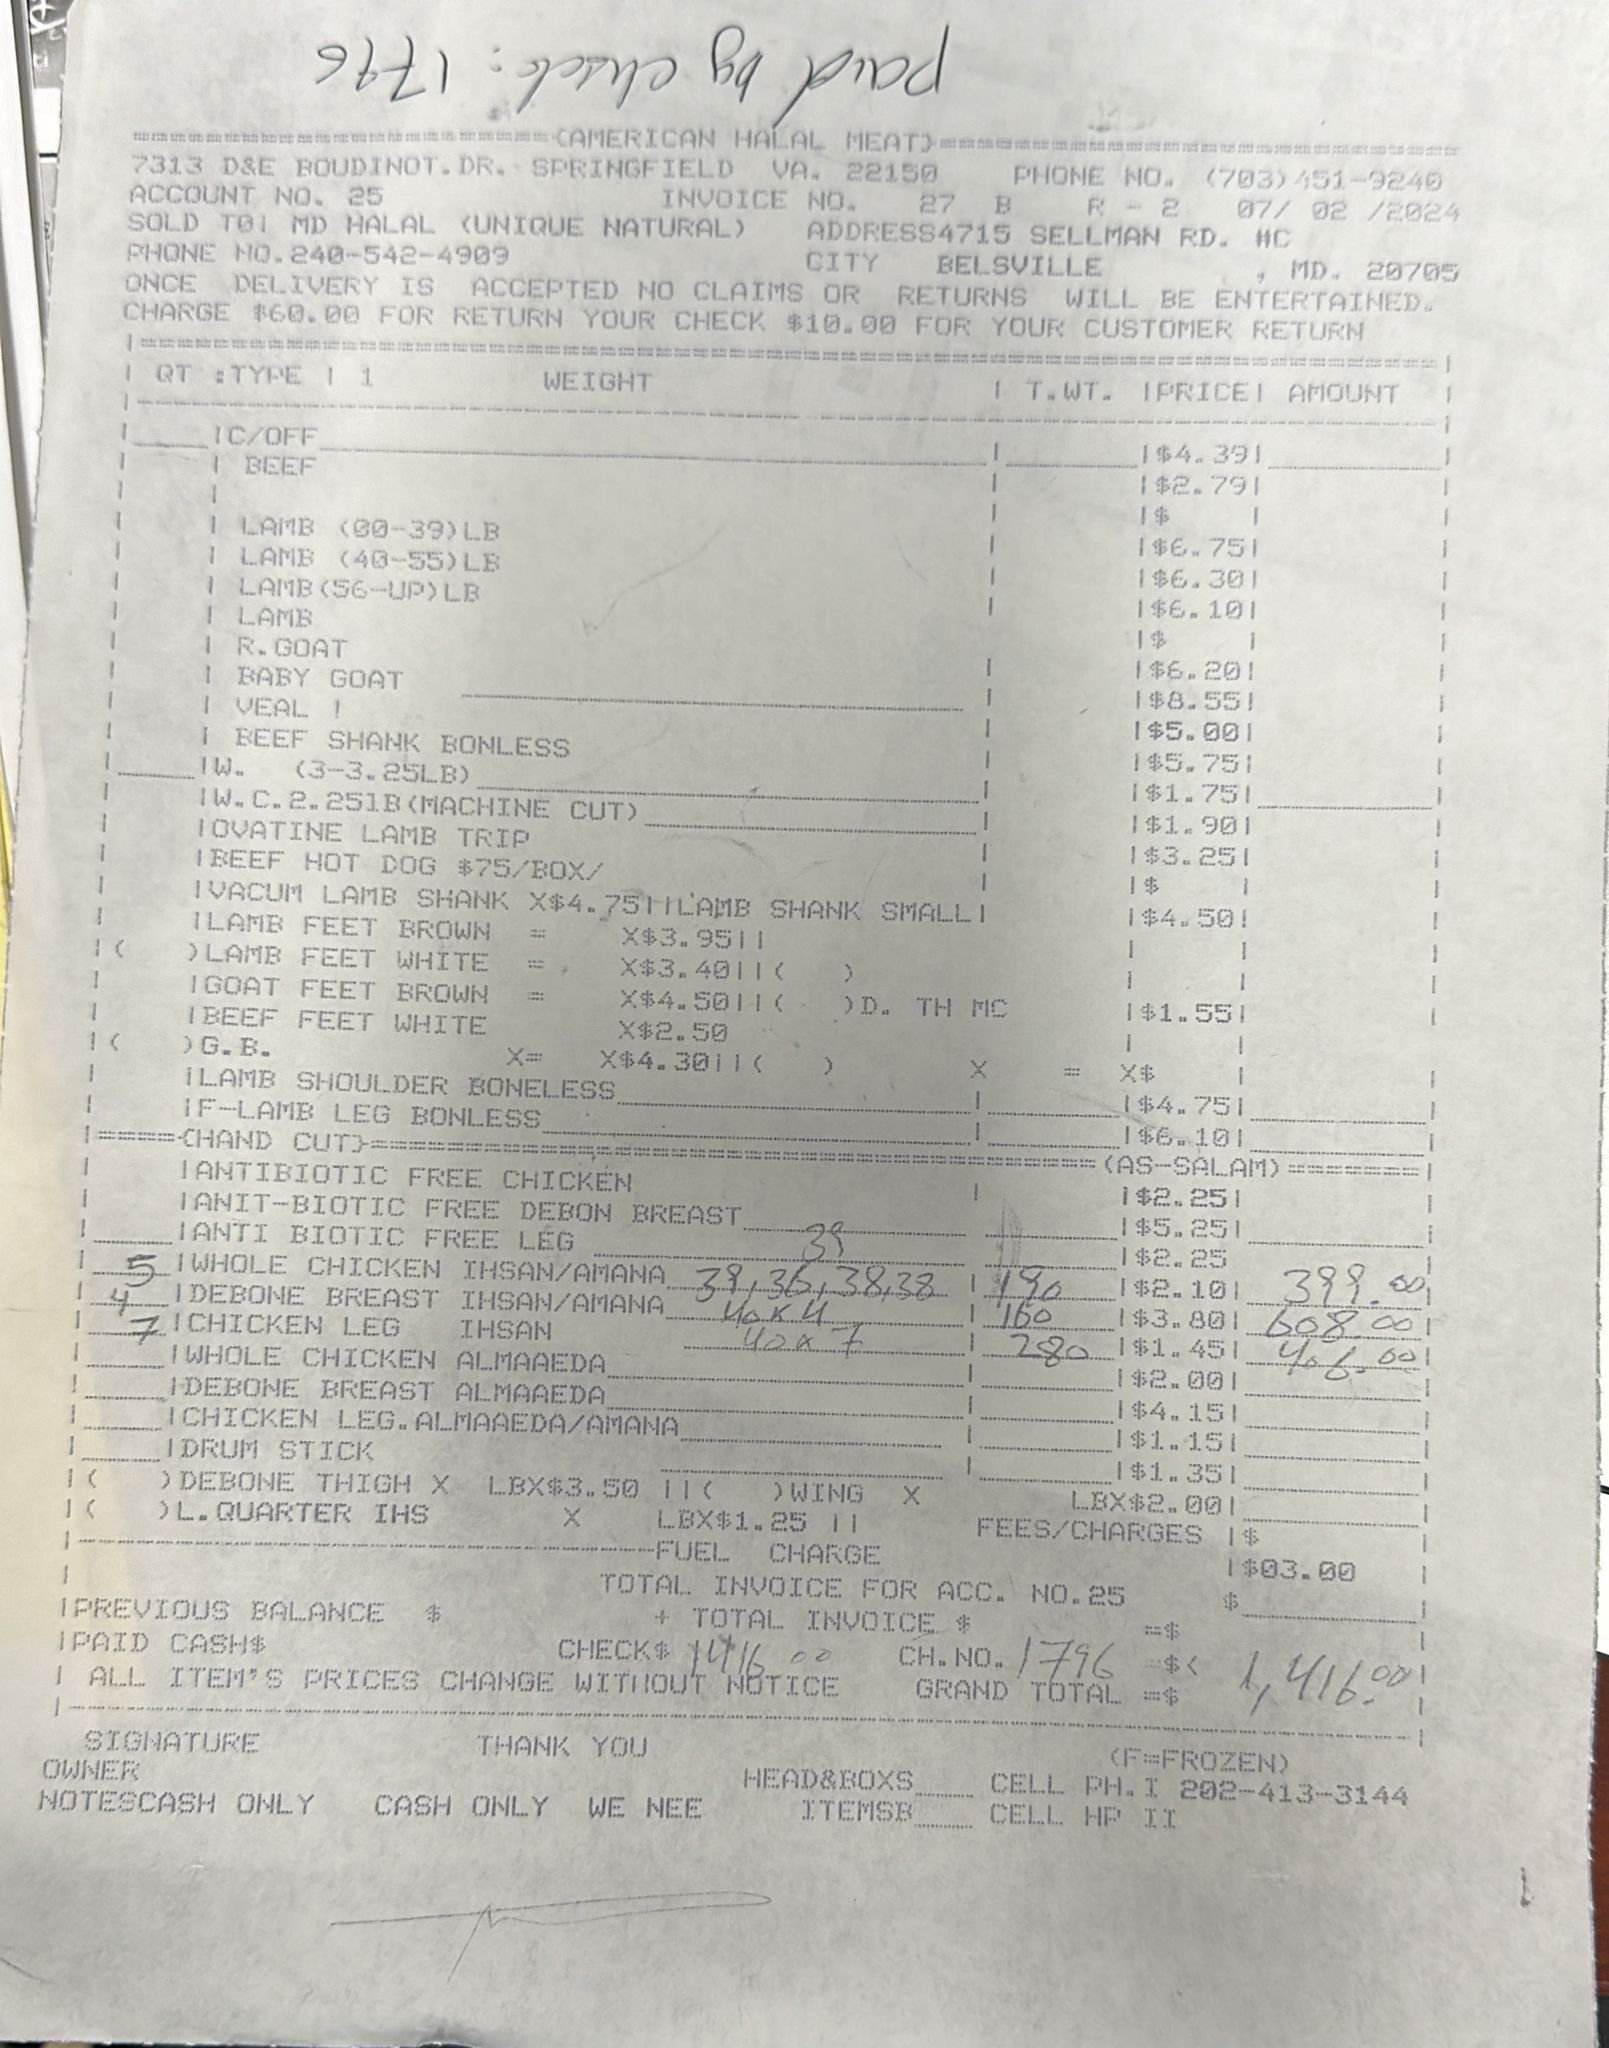 paid by check: 1796
(AMERICAN HALAL MEAT)
7313 D&E BOUDINOT.DR. SPRINGFIELD VA. 22150 PHONE NO. (703)451-9240
ACCOUNT NO. 25 INVOICE NO. 27 B R - 2 07/ 02 /2024
SOLD TO: MD HALAL (UNIQUE NATURAL) ADDRESS4715 SELLMAN RD. #C
PHONE NO.240-542-4909 CITY BELSVILLE , MD. 20705
ONCE DELIVERY IS ACCEPTED NO CLAIMS OR RETURNS WILL BE ENTERTAINED.
CHARGE $60.00 FOR RETURN YOUR CHECK $10.00 FOR YOUR CUSTOMER RETURN
QT :TYPE | 1 WEIGHT | T.WT. |PRICE| AMOUNT
|C/OFF |$4.39|
| BEEF |$2.79|
| |$ |
| LAMB (00-39)LB |$6.75|
| LAMB (40-55)LB |$6.30|
| LAMB(56-UP)LB |$6.10|
| LAMB |$ |
| R.GOAT |$6.20|
| BABY GOAT |$8.55|
| VEAL ! |$5.00|
| BEEF SHANK BONLESS |$5.75|
|W. (3-3.25LB) |$1.75|
|W.C.2.25lB(MACHINE CUT) |$1.90|
|OVATINE LAMB TRIP |$3.25|
|BEEF HOT DOG $75/BOX/ |$ |
|VACUM LAMB SHANK X$4.75||LAMB SHANK SMALL| |$4.50|
|LAMB FEET BROWN = X$3.95||
|( )LAMB FEET WHITE = X$3.40||( )
|GOAT FEET BROWN = X$4.50||( )D. TH MC |$1.55|
|BEEF FEET WHITE X$2.50
|( )G.B. X= X$4.30||( ) X = X$ |
|LAMB SHOULDER BONELESS |$4.75|
|F-LAMB LEG BONLESS |$6.10|
|=====(HAND CUT)=====(AS-SALAM)=======|
|ANTIBIOTIC FREE CHICKEN |$2.25|
|ANIT-BIOTIC FREE DEBON BREAST |$5.25|
|ANTI BIOTIC FREE LEG 39 |$2.25
5 |WHOLE CHICKEN IHSAN/AMANA 39,36,38,38 | 190 |$2.10| 399.00
4 |DEBONE BREAST IHSAN/AMANA 40x4 | 160 |$3.80| 608.00
7 |CHICKEN LEG IHSAN 40x7 | 280 |$1.45| 406.00
|WHOLE CHICKEN ALMAAEDA |$2.00|
|DEBONE BREAST ALMAAEDA |$4.15|
|CHICKEN LEG.ALMAAEDA/AMANA |$1.15|
|DRUM STICK |$1.35|
|( )DEBONE THIGH X LBX$3.50 ||( )WING X LBX$2.00|
|( )L.QUARTER IHS X LBX$1.25 || FEES/CHARGES |$
FUEL CHARGE |$03.00
TOTAL INVOICE FOR ACC. NO.25 $
|PREVIOUS BALANCE $ + TOTAL INVOICE $ =$
|PAID CASH$ CHECK$ 1416.00 CH.NO. 1796 =$<
| ALL ITEM'S PRICES CHANGE WITHOUT NOTICE GRAND TOTAL =$ 1,416.00
SIGNATURE THANK YOU (F=FROZEN)
OWNER HEAD&BOXS CELL PH.I 202-413-3144
NOTESCASH ONLY CASH ONLY WE NEE ITEMSB CELL HP II